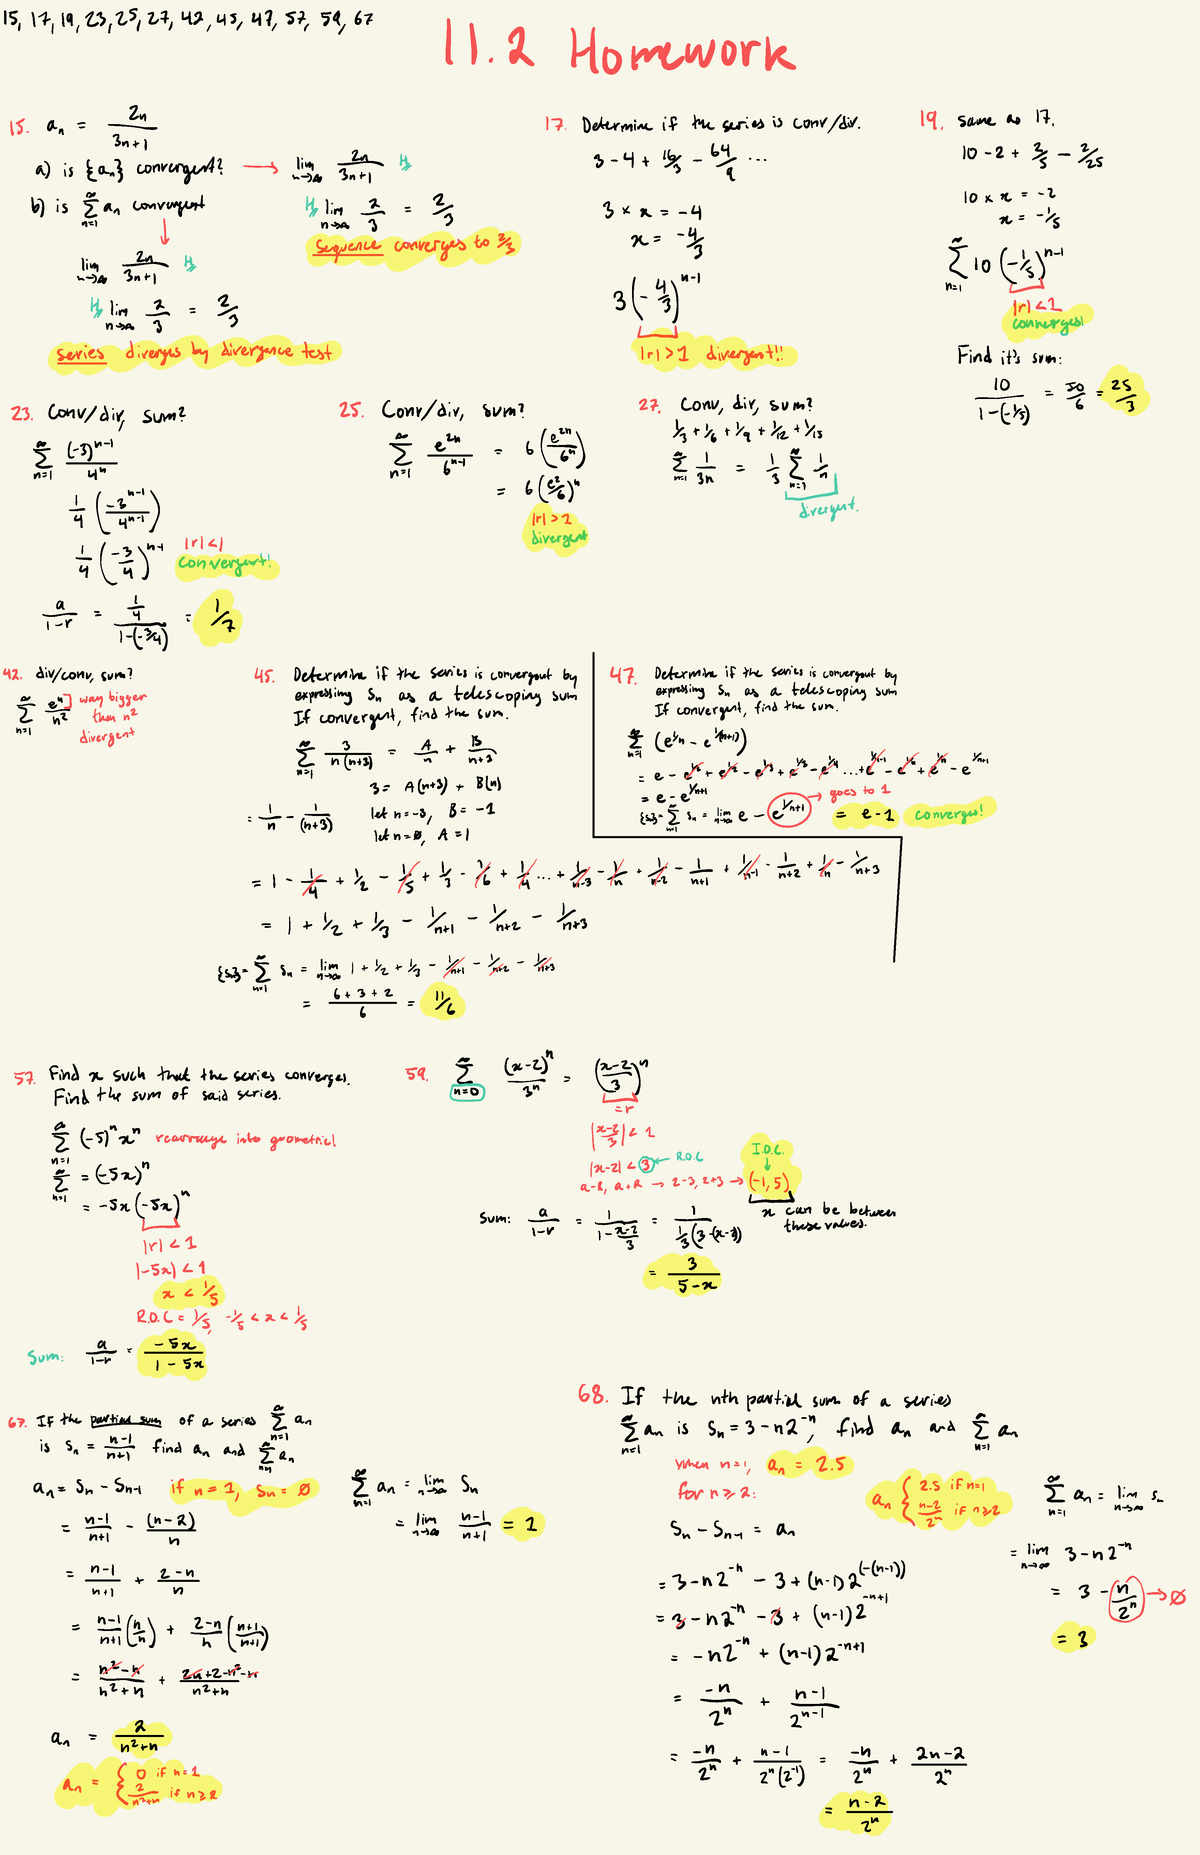 15, 17, 19, 23, 25, 27, 42, 45, 47, 57, 59, 67
11.2 Homework
15. aₙ = 2n/(3n+1)
a) is {aₙ} convergent? → lim n→∞ 2n/(3n+1) H
H lim n→∞ 2/3 = 2/3
Sequence converges to 2/3
b) is ∞Σn=1 aₙ convergent
lim n→∞ 2n/(3n+1) H
H lim n→∞ 2/3 = 2/3
series diverges by divergence test
17. Determine if the series is conv/div.
3 - 4 + 16/3 - 64/9 ...
3 × x = -4
x = -4/3
3(-4/3)^(n-1)
|r| > 1 divergent!!
19. Same as 17.
10 - 2 + 2/5 - 2/25
10 × x = -2
x = -1/5
∞Σn=1 10(-1/5)^(n-1)
|r| < 1
converges!
Find it's sum:
10/(1-(-1/5)) = 50/6 = 25/3
23. Conv/div, sum?
∞Σn=1 (-3)^(n-1)/4ⁿ
1/4 (-3^(n-1)/4^(n-1))
1/4 (-3/4)^(n-1) |r| < 1
convergent!
a/(1-r) = (1/4)/(1-(-3/4)) = 1/7
25. Conv/div, sum?
∞Σn=1 e^(2n)/6^(n-1) = 6(e^(2n)/6ⁿ)
= 6(e²/6)ⁿ
|r| > 1
divergent
27. Conv, div, sum?
1/3 + 1/6 + 1/9 + 1/12 + 1/15
∞Σn=1 1/3n = 1/3 ∞Σn=1 1/n
divergent.
42. div/conv, sum?
∞Σn=1 eⁿ/n² ] way bigger
than n²
divergent
45. Determine if the series is convergent by
expressing Sₙ as a telescoping sum
If convergent, find the sum.
∞Σn=1 3/(n(n+3)) = A/n + B/(n+3)
3 = A(n+3) + B(n)
= 1/n - 1/(n+3) let n=-3, B = -1
let n=0, A = 1
= 1 - 1/4 + 1/2 - 1/5 + 1/3 - 1/6 + 1/4 ... + 1/(n-3) - 1/n + 1/(n-2) - 1/(n+1) + 1/(n-1) - 1/(n+2) + 1/n - 1/(n+3)
= 1 + 1/2 + 1/3 - 1/(n+1) - 1/(n+2) - 1/(n+3)
{sₙ} = ∞Σn=1 sₙ = lim n→∞ 1 + 1/2 + 1/3 - 1/(n+1) - 1/(n+2) - 1/(n+3)
= (6+3+2)/6 = 11/6
47. Determine if the series is convergent by
expressing Sₙ as a telescoping sum
If convergent, find the sum.
∞Σn=1 (e^(1/n) - e^(1/(n+1)))
= e - e^(1/2) + e^(1/2) - e^(1/3) + e^(1/3) - e^(1/4) ... + e^(1/(n-1)) - e^(1/n) + e^(1/n) - e^(1/(n+1))
= e - e^(1/(n+1)) → goes to 1
{sₙ} = ∞Σn=1 sₙ = lim n→∞ e - e^(1/(n+1)) = e - 1 converges!
57. Find x such that the series converges.
Find the sum of said series.
∞Σn=1 (-5)ⁿxⁿ rearrange into geometric!
∞Σn=1 = (-5x)ⁿ
= -5x(-5x)ⁿ
|r| < 1
|-5x| < 1
x < 1/5
R.O.C = 1/5, -1/5 < x < 1/5
Sum: a/(1-r) = -5x/(1-5x)
59. ∞Σn=0 (x-2)ⁿ/3ⁿ = ((x-2)/3)ⁿ
= r
|(x-2)/3| < 1
|x-2| < 3 ← R.O.C
I.O.C.
↓
a-R, a+R → 2-3, 2+3 → (-1, 5)
x can be between
these values.
Sum: a/(1-r) = 1/(1-(x-2)/3) = 1/(1/3(3-(x-2)))
= 3/(5-x)
67. If the partial sum of a series ∞Σn=1 aₙ
is sₙ = (n-1)/(n+1) find aₙ and ∞Σn=1 aₙ
aₙ = Sₙ - Sₙ₋₁ if n = 1, Sₙ = 0
= (n-1)/(n+1) - (n-2)/n
= (n-1)/(n+1) + (2-n)/n
= (n-1)/(n+1) (n/n) + (2-n)/n ((n+1)/(n+1))
= (n²-n)/(n²+n) + (2n+2-n²-n)/(n²+n)
aₙ = 2/(n²+n)
aₙ = { 0 if n=1
2/(n²+n) if n≥2
∞Σn=1 aₙ = lim n→∞ Sₙ
= lim n→∞ (n-1)/(n+1) = 1
68. If the nth partial sum of a series
∞Σn=1 aₙ is Sₙ = 3 - n2⁻ⁿ, find aₙ and ∞Σn=1 aₙ
when n=1, aₙ = 2.5
for n≥2:
Sₙ - Sₙ₋₁ = aₙ
= 3 - n2⁻ⁿ - 3 + (n-1)2^(-(n-1))
= 3 - n2⁻ⁿ - 3 + (n-1)2^(-n+1)
= -n2⁻ⁿ + (n-1)2^(-n+1)
= -n/2ⁿ + (n-1)/2^(n-1)
= -n/2ⁿ + (n-1)/(2ⁿ(2⁻¹)) = -n/2ⁿ + (2n-2)/2ⁿ
= (n-2)/2ⁿ
aₙ { 2.5 if n=1
(n-2)/2ⁿ if n≥2
∞Σn=1 aₙ = lim n→∞ sₙ
= lim n→∞ 3 - n2⁻ⁿ
= 3 - n/2ⁿ → 0
= 3